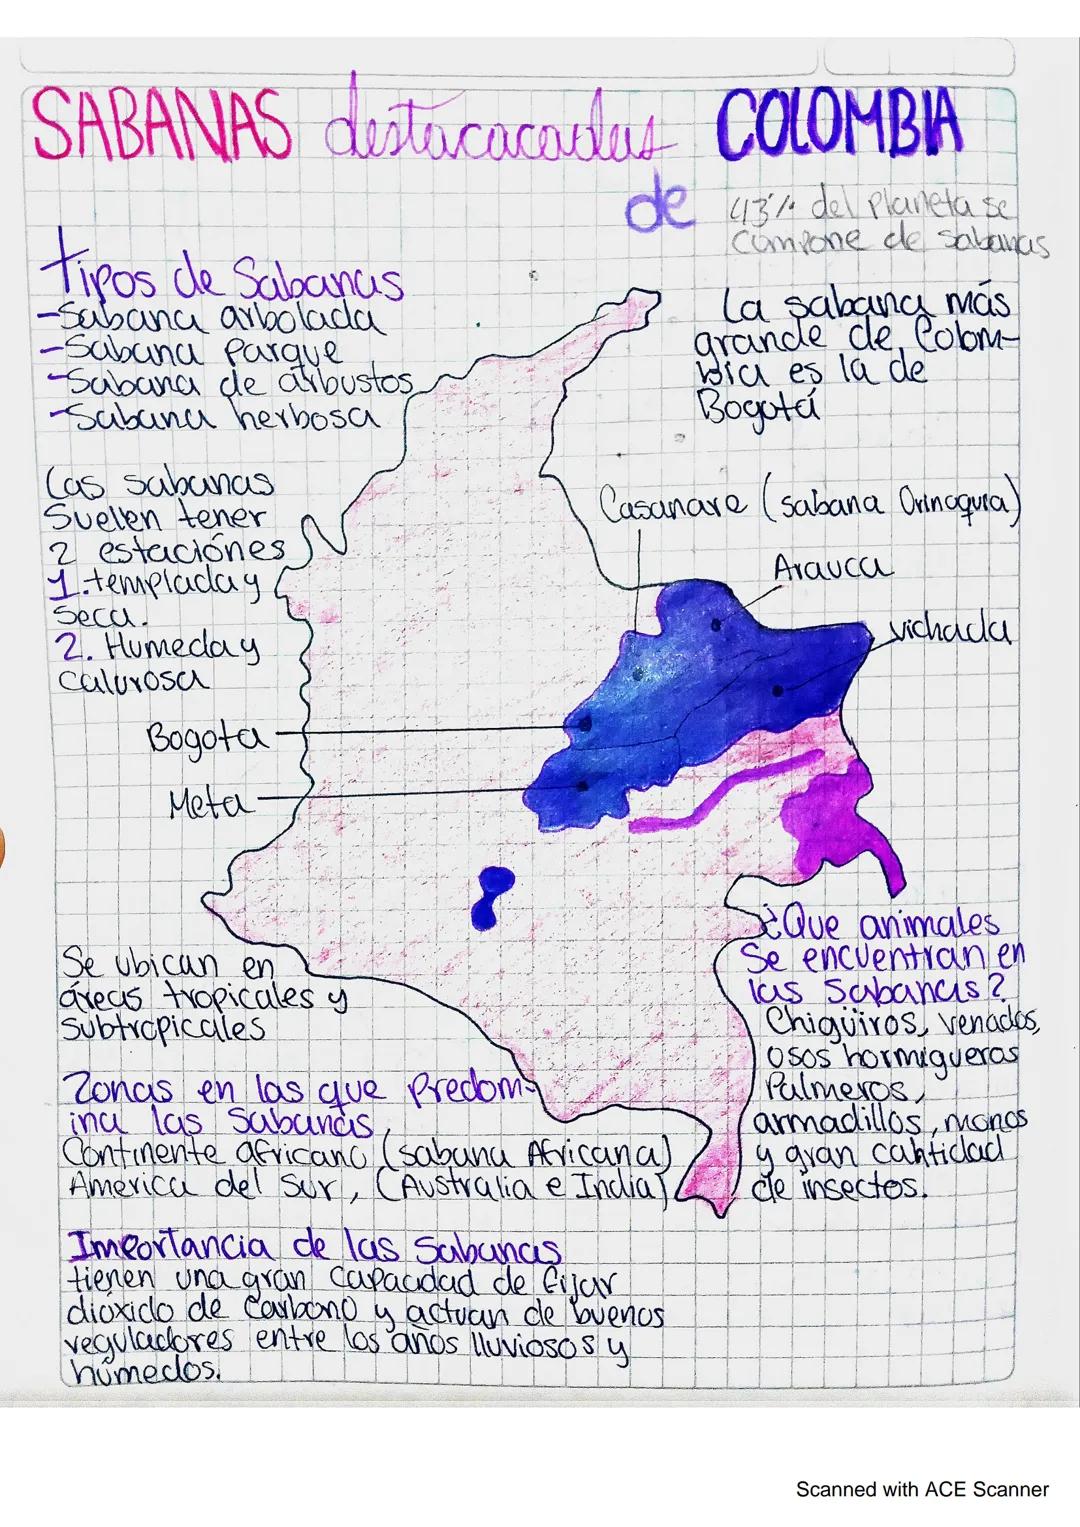 SABANAS destacacadas COLOMBIA
de
43% del planeta se
compone de sabanas
tipos de Sabanas
-Sabana arbolada
-Sabana Parque
-Sabana de arbustos
-Sabana herbosa
La sabana más
grande de Colom-
bia es la de
Bogotá
Las sabanas
Suelen tener
2 estaciónes
1.templada y
seca.
2. Humeda y
calurosa
Casanare (sabana Orinoquia)
Arauca
vichada
Bogota
Meta
Se ubican en
áreas tropicales y
subtropicales
Zonas en las que Predom-
ina las Sabanas
Continente africano (sabana Africana)
America del sur, (Australia e India)
¿Que animales
Se encuentran en
las Sabanas?
Chigüiros, venados,
osos hormigueros
Palmeros,
armadillos, monos
y gran cantidad
de insectos.
Importancia de las Sabanas
tienen una gran Capacidad de fijar
dióxido de Carbono y actuan de buenos
reguladores entre los años lluviosos y
húmedos.
Scanned with ACE Scanner